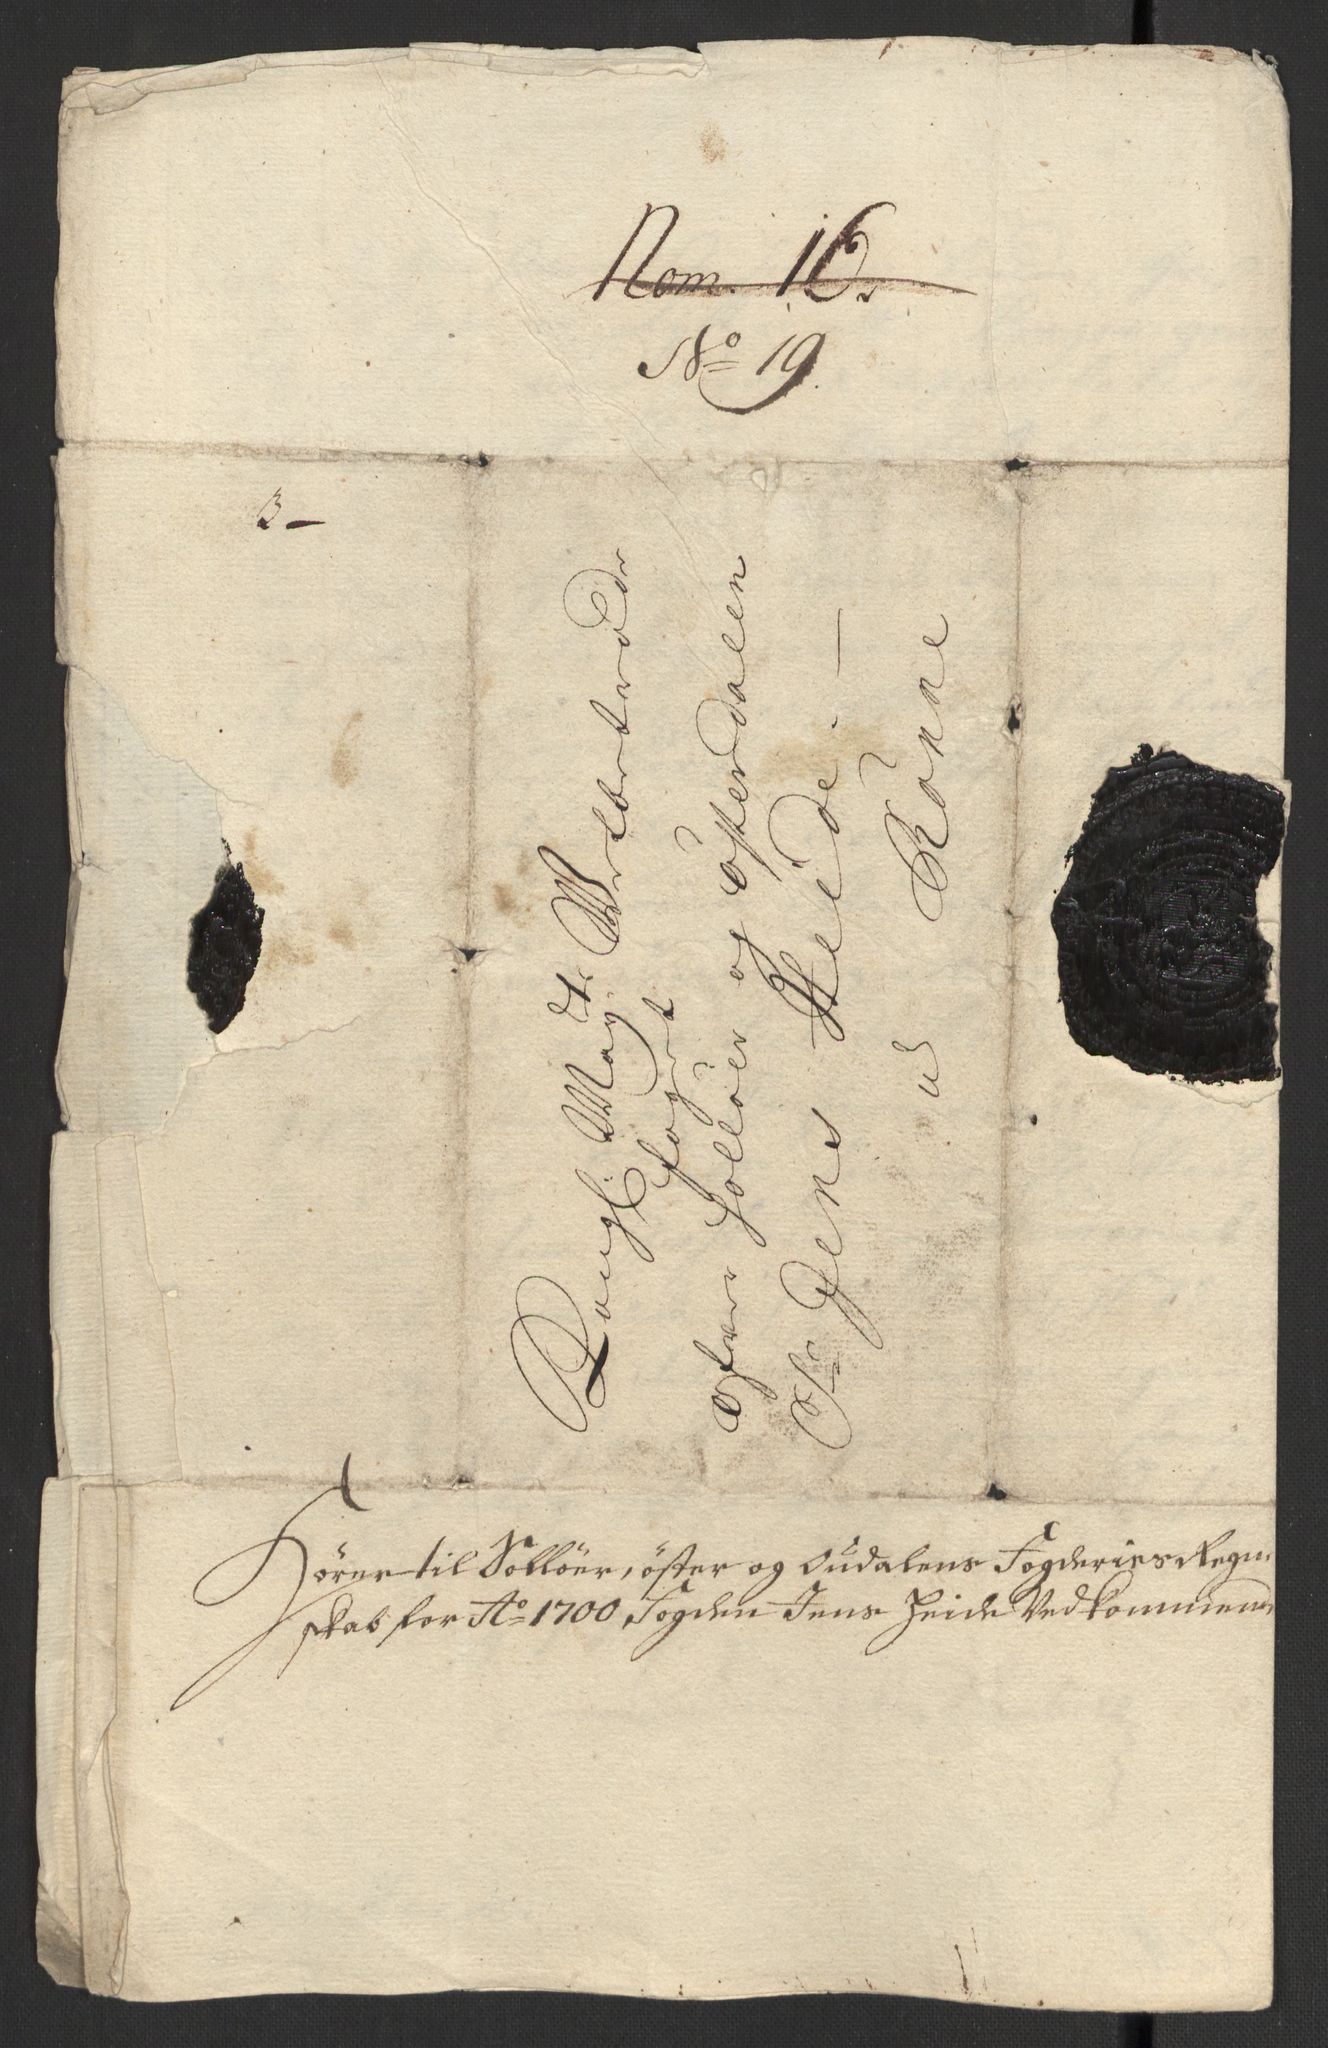 Nom. 16.
No 19
3 –
Kongl. Mayts. Welbetrode
fogt
ofver Solløer og Østerdalen
Sr Jens Heide. –
a Konne
Hörer til Solöer, öster og Oudalens Fogderies Regn-
skab for Ao 1700 Fogden Jens Heide Vedkommende